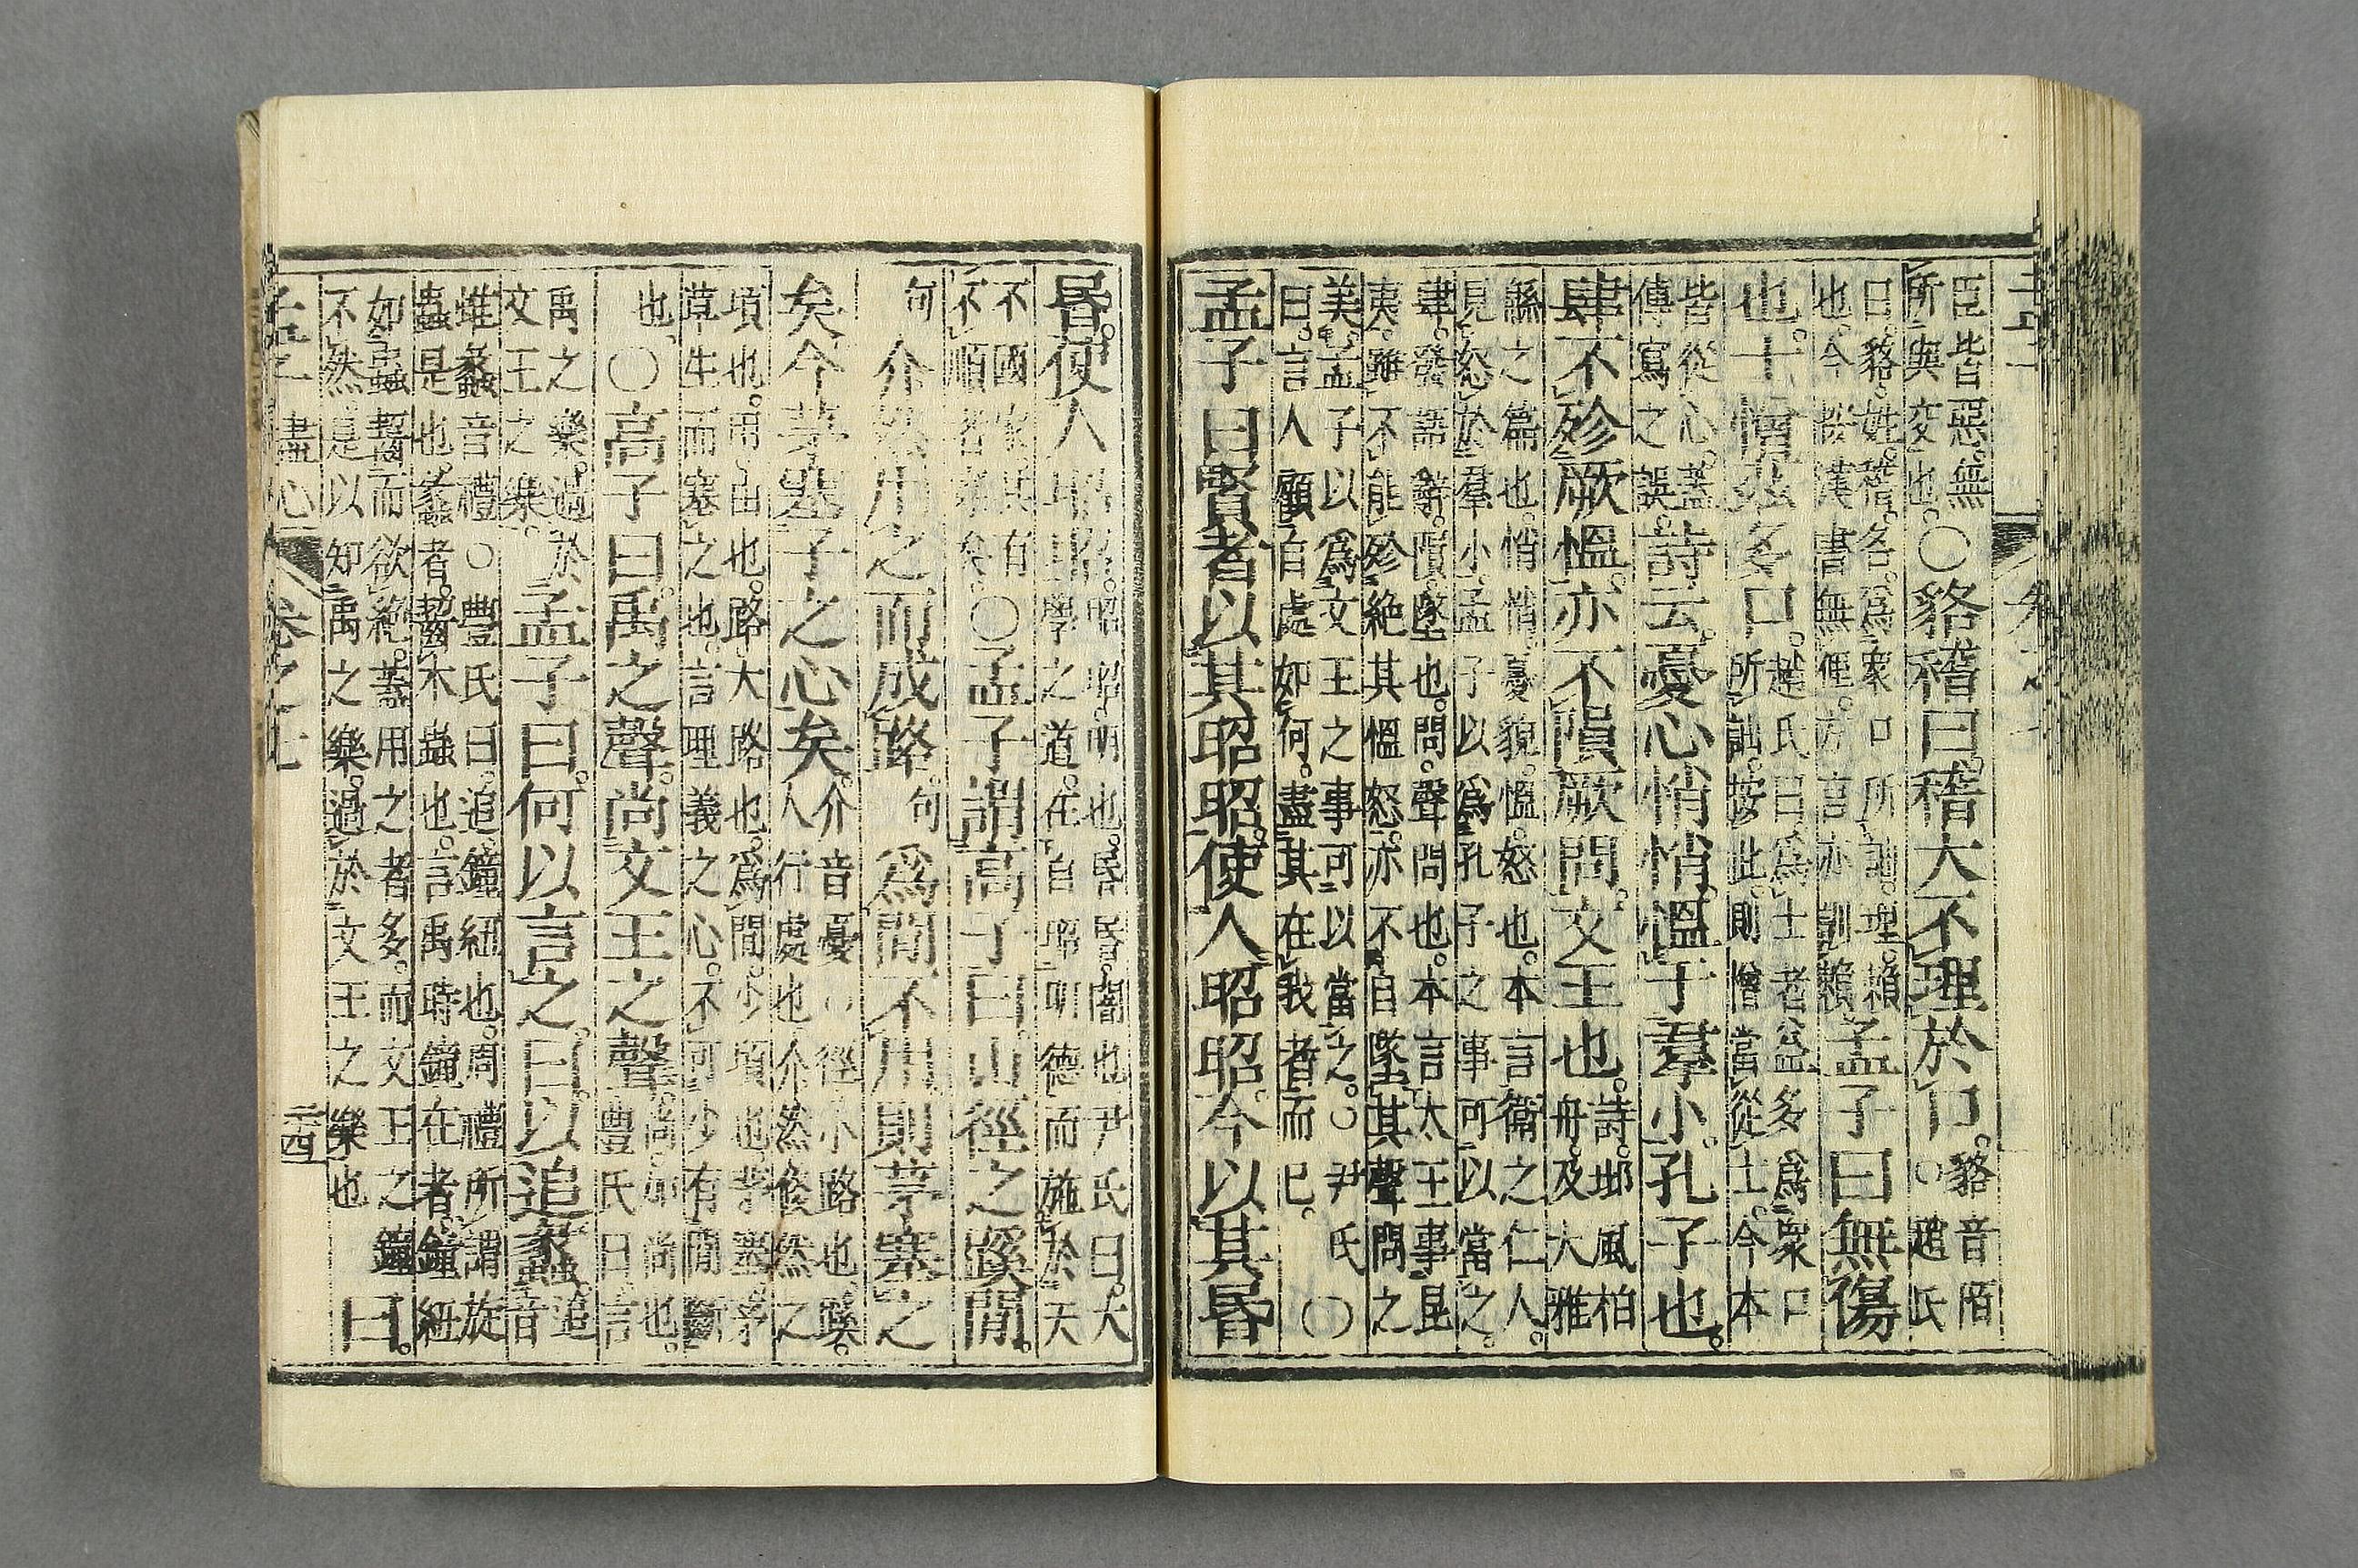 臣皆惡。無
所與交也。
○貉稽曰。稽大不理於口。
貉音陌
○趙氏
曰。貉。姓。稽。名。爲衆口所訕。理。賴
也。今按漢書無俚。方言亦訓賴
孟子曰無傷
也。士憎茲多口。
趙氏曰。爲士者益多爲衆口
所訕。按此。則憎當從土。今本
皆從心。蓋
傳寫之誤。
詩云。憂心悄悄。慍于羣小。孔子也。
肆不殄厥慍。亦不隕厥問。文王也。
詩。邶風柏
舟。及大雅
緜之篇也。悄悄。憂貌。慍。怒也。本言衛之仁人。
見怒於羣小。孟子以爲孔子之事可以當之。
肆。發語辭。隕。墜也。問。聲問也。本言太王事昆
夷。雖不能殄絶其慍怒。亦不自墜其聲問之
美。孟子以爲文王之事可以當之。○尹氏
曰。言人顧自處如何。盡其在我者而已。
○
孟子曰賢者以其昭昭。使人昭昭。今以其昏
昏。使人昭昭。
昭昭。明也。昏昏。闇也尹氏曰。大
學之道。在自昭明德而施於天
不國家其有
不順者寡矣。
○孟子謂高子曰。山徑之蹊閒。
句介然用之而成路。句爲閒不用則茅塞之
矣今茅塞子之心矣。
介音憂○徑小路也。蹊。
人行處也介然倏然之
頃也。用由也。路。大路也。爲閒。少頃也。茅塞。茅
草生而塞之也。言理義之心。不可少有閒斷
也
○高子曰。禹之聲。尚文王之聲。
尚加尚也。
豐氏曰言
禹之樂。過於
文王之樂。
孟子曰。何以言之。曰。以追蠡
追
音
堆蠡音禮○豐氏曰。追。鐘紐也。周禮所謂旋
蟲是也。蠡者。齧木蟲也。言禹時鐘在者。鐘紐
如蟲齧而欲絶。蓋用之者多。而文王之鐘
不然。是以知禹之樂。過於文王之樂也
曰。
孟子 盡心 卷之七 二四